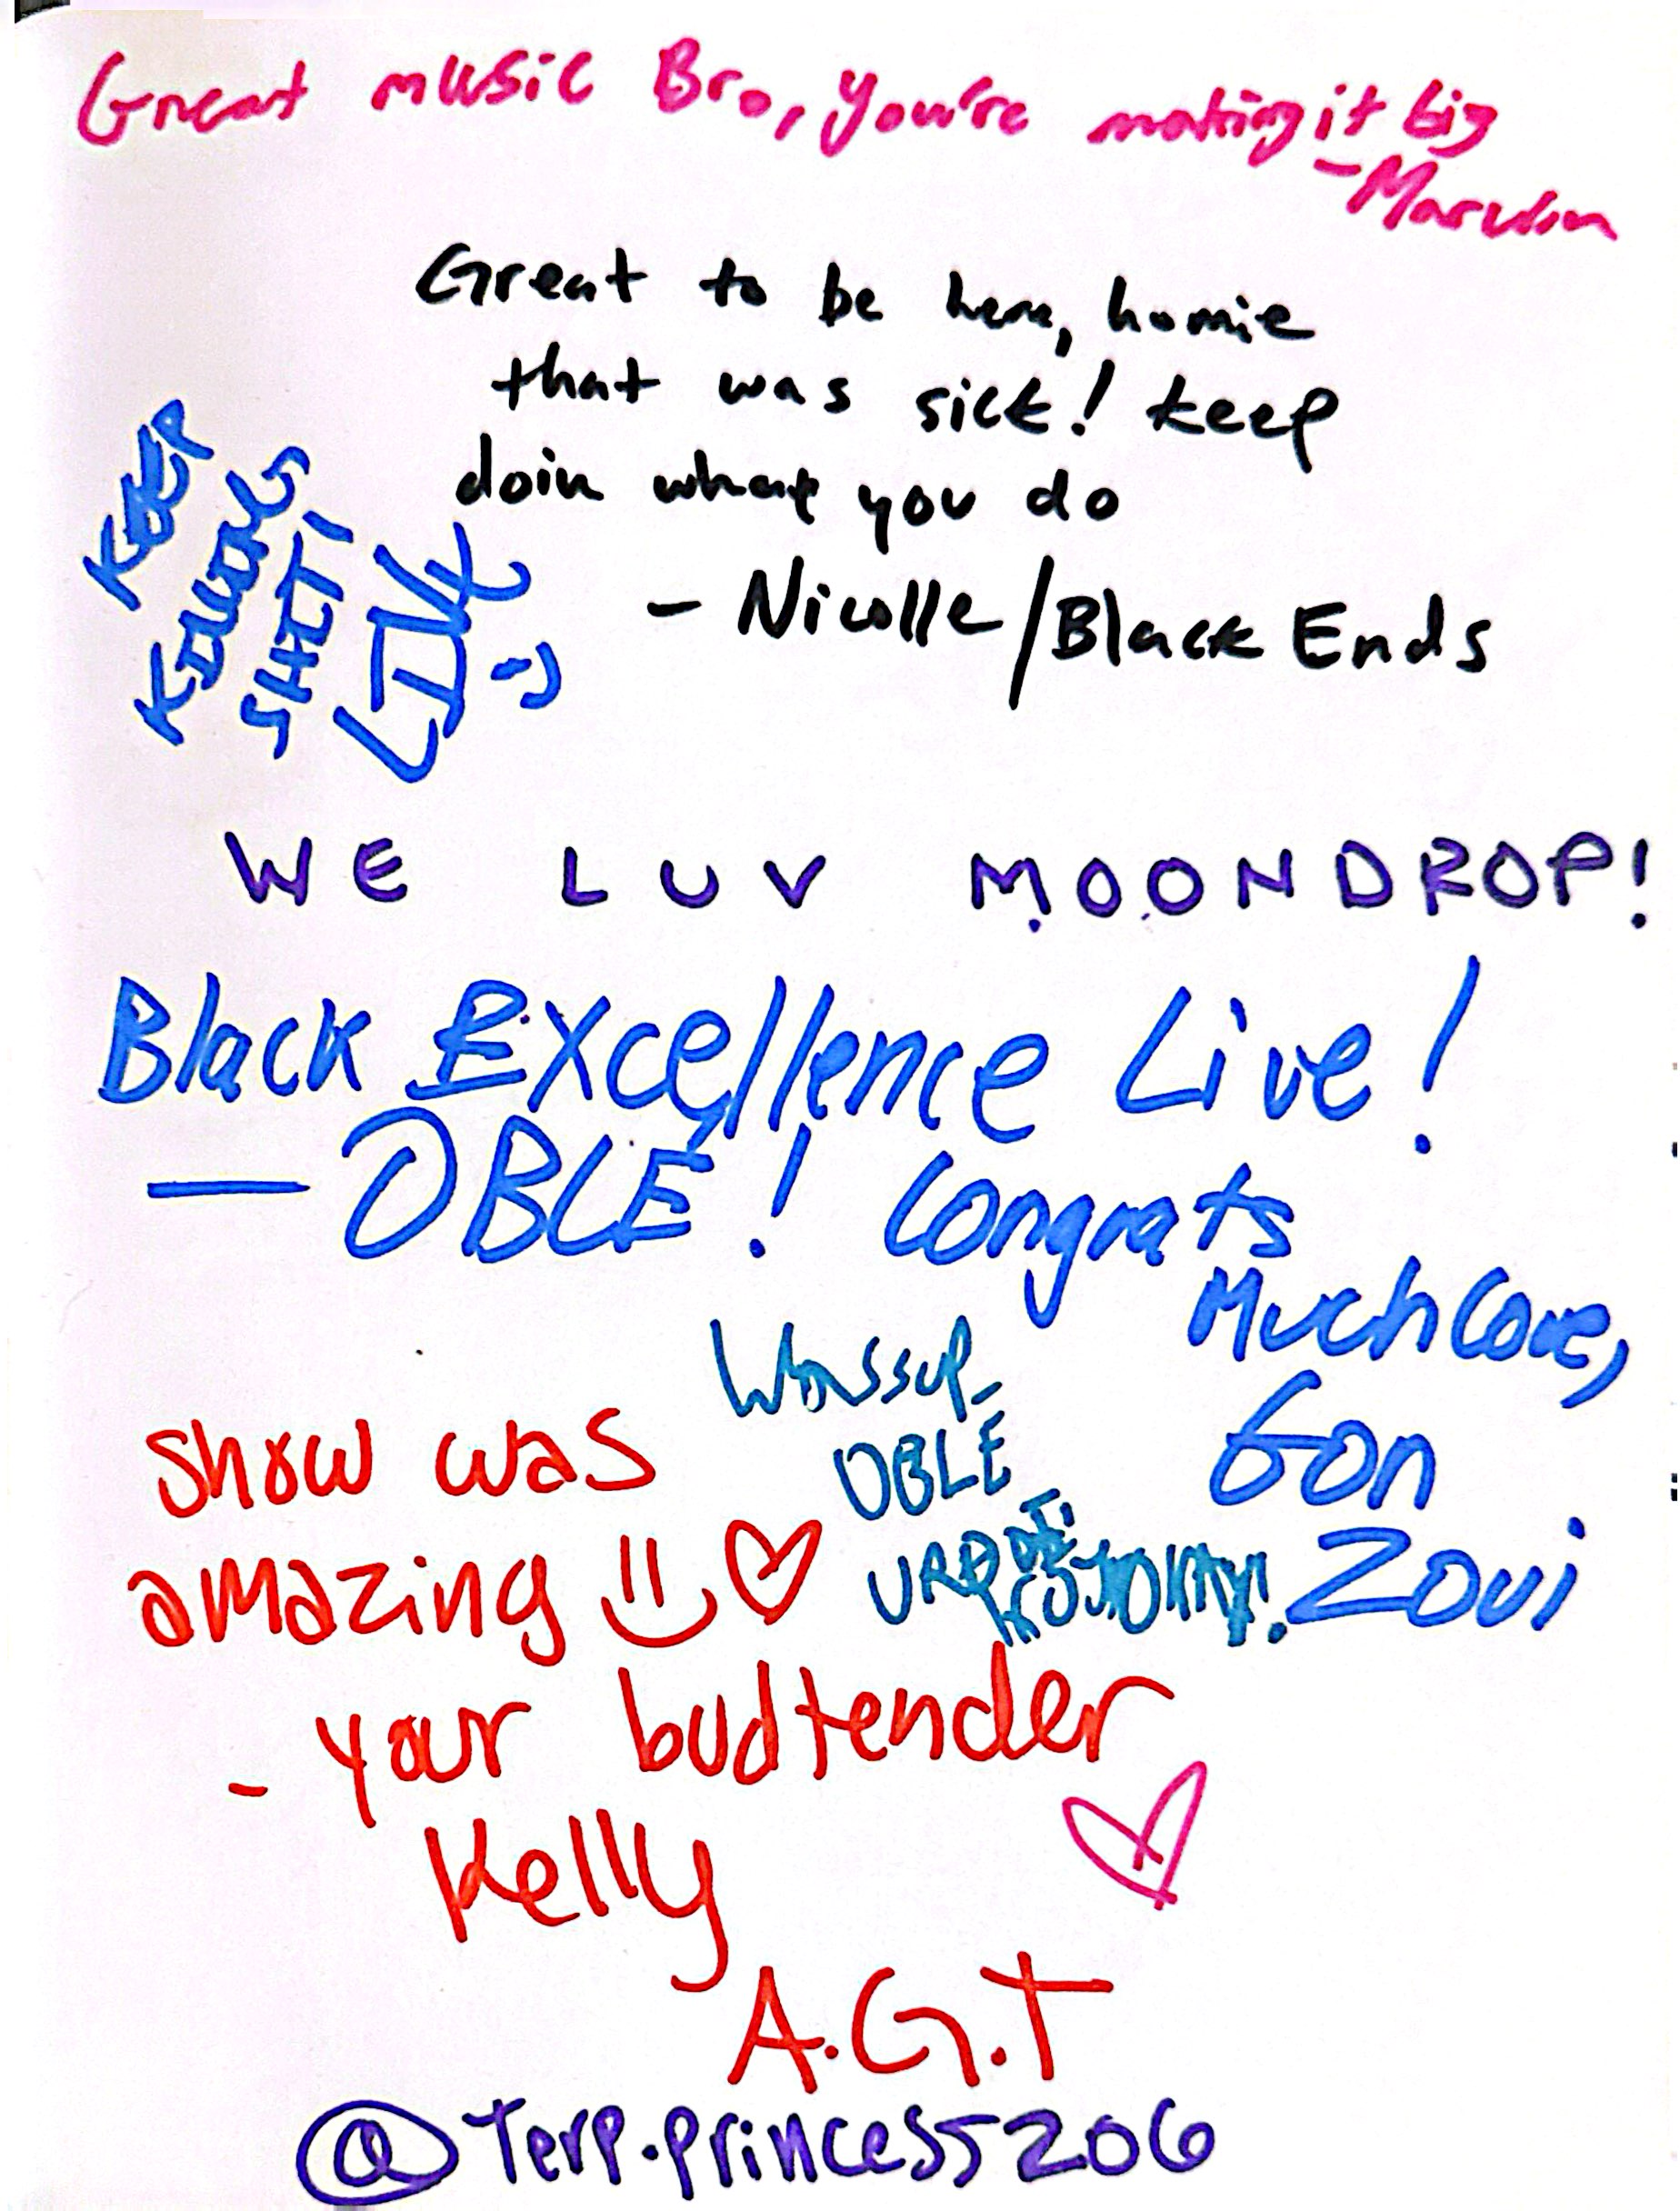 Great music Bro, you're making it big
- Marvin
Great to be here, homie
that was sick! keep
doin what you do
- Nicolle/Black Ends
KEEP
KILLING
SHIT!
WE LUV MOONDROP!
Black Excellence Live!
— OBLE! Congrats
Much Love,
Gon
Zoui
Wassup
OBLE
show was
amazing
- your budtender
Kelly
A.G.T
@Terp.princess206